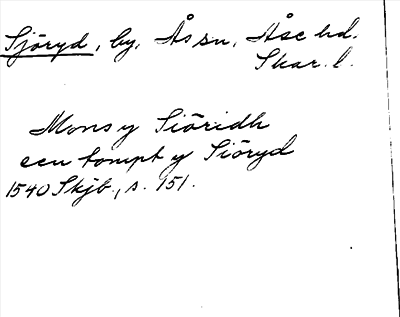 Sjöryd, by, Ås sn, Åse hd.
Skar. l.
Mons y Siöridh
een tompt y Siöryd
1540 Skjb., s. 151.